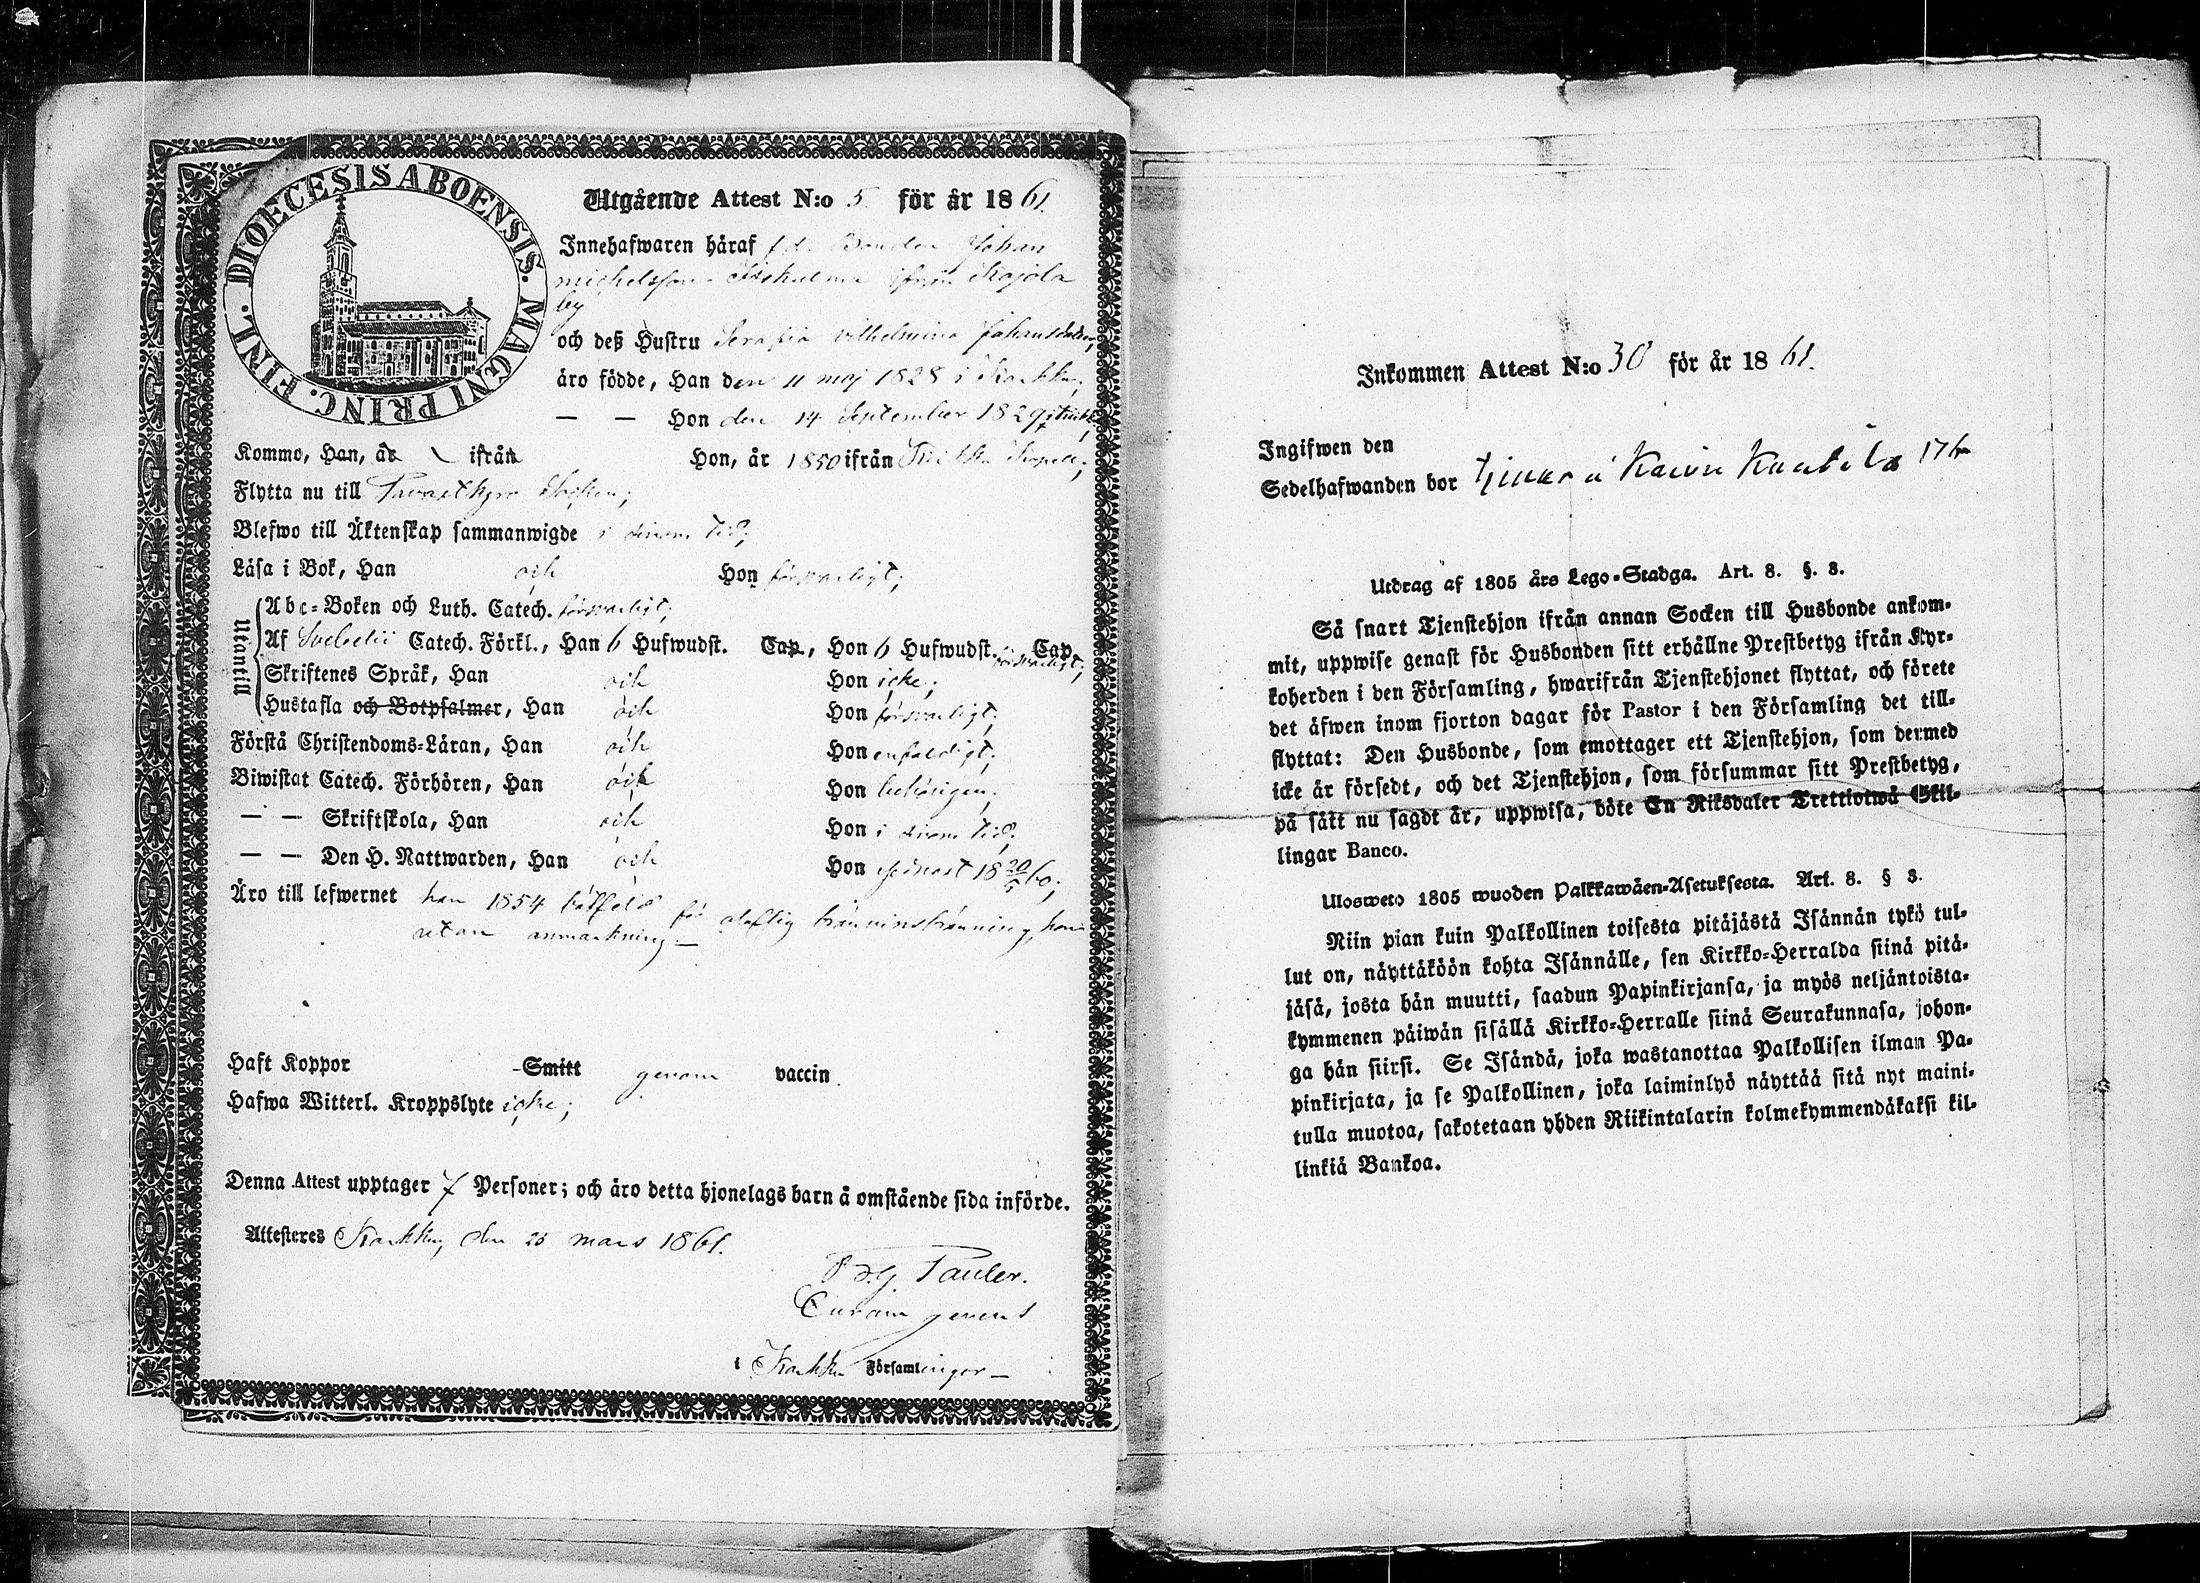 DIOECESIS ABOENSIS. MAGNI PRINC. FINL.
Utgående Attest N:o 5 för år 1861.
Innehafwaren häraf f.d. Bonden Johan
michelsson ifrån Kojola
by
och deß Hustru Serafia vilhelmina Johansdotter,
äro födde, Han den 11 maj 1828 i Karkku,
— — Hon den 14 September 1829
Kommo, Han, år ifrån Hon, år 1850 ifrån Kapell;
Flytta nu till Tavastkyro Socken;
Blefwo till Äktenskap sammanwigde i sinom tid;
Läsa i Bok, Han och Hon försvarligt;
Utantill
Abc-Boken och Luth. Catech. försvarligt;
Af Svebelii Catech. Förkl., Han 6 Hufwudst. Cap., Hon 6 Hufwudst. Cap. försvarligt;
Skriftenes Språk, Han och Hon icke;
Hustafla och Botpsalmer, Han och Hon försvarligt;
Förstå Christendoms-Läran, Han och Hon enfaldigt;
Biwistat Catech. Förhören, Han och Hon behörigen;
— — Skriftskola, Han och Hon i sinom tid;
— — Den H. Nattwarden, Han och Hon sednast 18 20/5 60;
Äro till lefwernet han 1854 bötfeld för oloflig bränvinsbränning, hon
utan anmärkning —
Haft Koppor Smitt genom vaccin
Hafwa Witterl. Kroppslyte icke;
Denna Attest upptager 7 Personer; och äro detta hjonelags barn å omstående sida införde.
Attesteres Karkku, den 25 mars 1861.
Pauler.
Curam gerens
i Karkku Församlingar —
Inkommen Attest N:o 30 för år 1861.
Ingifwen den
Sedelhafwanden bor 176
Utdrag af 1805 års Lego-Stadga. Art. 8. §. 8.
Så snart Tjenstehjon ifrån annan Socken till Husbonde ankom-
mit, uppwise genast för Husbonden sitt erhållne Prestbetyg ifrån Kyr-
koherden i den Församling, hwarifrån Tjenstehjonet flyttat, och förete
det äfwen inom fjorton dagar för Pastor i den Församling det till-
flyttat: Den Husbonde, som emottager ett Tjenstehjon, som dermed
icke är försedt, och det Tjenstehjon, som försummar sitt Prestbetyg,
på sätt nu sagdt är, uppwisa, böte En Riksdaler Trettiotwå Skil-
lingar Banco.
Ulosweto 1805 wuoden Palkkawäen-Asetuksesta. Art. 8. § 8.
Niin pian kuin Palkollinen toisesta pitäjästä Isännän tykö tul-
lut on, näyttäköön kohta Isännälle, sen Kirkko-Herralda siinä pitä-
jäsä, josta hän muutti, saadun Papinkirjansa, ja myös neljäntoista-
kymmenen päiwän sisällä Kirkko-Herralle siinä Seurakunnasa, johon-
ga hän siirsi. Se Isändä, joka wastanottaa Palkollisen ilman Pa-
pinkirjata, ja se Palkollinen, joka laiminlyö näyttää sitä nyt maini-
tulla muotoa, sakotetaan yhden Riikintalarin kolmekymmendäkaksi kil-
linkiä Bankoa.